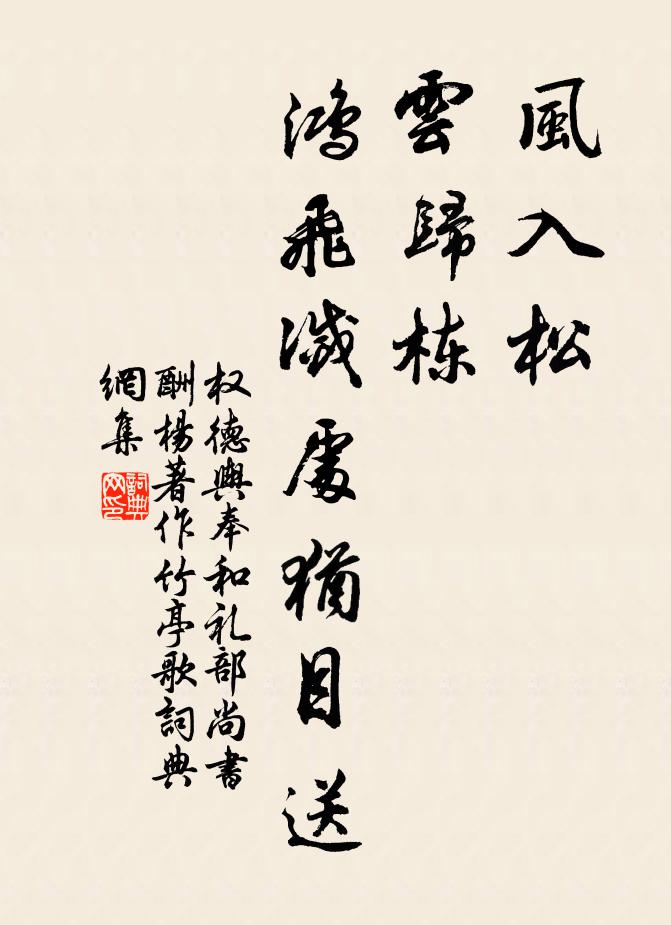 風入松
雲歸栋
鴻飛滅處猶目送
权德輿奉和礼部尚書
酬楊著作竹亭歌詞典
網集
詞典
网印